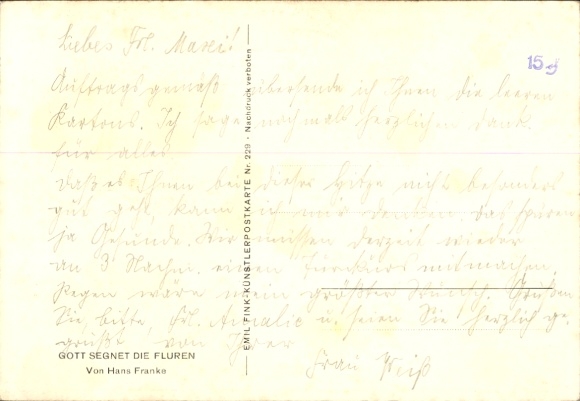 Liebes Frl. Marei!
Auftragsgemäß übersende ich Ihnen die leeren
Kartons. Ich sage nochmals herzlichen Dank
für alles
Daß es Ihnen bei dieser Hitze nicht besonders
gut geht, kann ich mir denken. Das spüren
ja Gesunde. Wir müssen derzeit wieder
an 3 Nachm. einen mitmachen.
Regen wäre mein größter Wunsch. Grüßen
Sie, bitte, Frl. Amalie u. seien Sie herzlich ge-
grüßt von Ihrer
Frau Weiß
15 ₰
EMIL FINK-KÜNSTLERPOSTKARTE Nr. 229 · Nachdruck verboten
GOTT SEGNET DIE FLUREN
Von Hans Franke